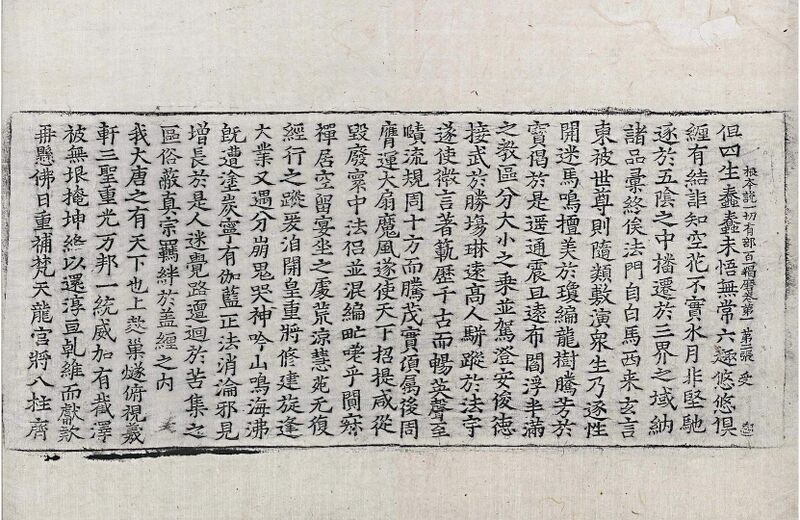 根本說一切有部百一羯磨卷第一 第二張 受
但四生蠢蠢未悟無常六趣悠悠俱
纏有結詎知空花不實水月非堅馳
逐於五陰之中播遷於三界之域納
諸品彙終俟法門自白馬西来玄言
東被世尊則隨類敷演衆生乃逐性
開迷馬鳴擅美於瓊編龍樹騰芳於
寶偈於是遥通震旦遠布閻浮半滿
之教區分大小之乗並駕澄安俊德
接武於勝場琳遠高人駢蹤於法宇
遂使微言著範歷千古而暢英聲至
賾流規周十方而騰茂實頃屬後周
膺運大扇魔風遂使天下招提咸從
毀廢寰中法侶並混編甿嗟乎闃寂
禪居空留宴坐之處荒涼慧苑无復
經行之蹤爰洎開皇重將修建旋逢
大業又遇分崩鬼哭神吟山鳴海沸
旣遭塗炭寧有伽藍正法消淪邪見
增長於是人迷覺路邅迴於苦集之
區俗蔽真宗羈絆於盖纏之内
我大唐之有天下也上巢燧俯視羲
軒三聖重光万邦一統威加有截澤
被無垠掩坤絡以還淳亘乹維而獻款
再懸佛日重補梵天龍宫將八柱齊